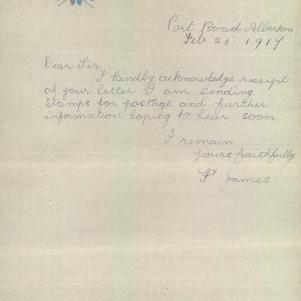 Port Road Alberton
Feb 25. 1917
Dear Sir
I kindly acknowledge receipt
of your letter I am sending
stamps for postage and further
information hoping to hear soon
I remain
yours faithfully
James